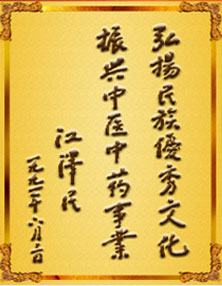 弘揚民族優秀文化
振兴中医中药事業
江泽民
一九九一年六月六日